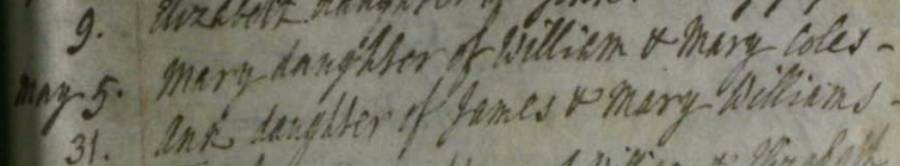 9. Elizabeth daughter of
May 5. Mary daughter of William & Mary Coles -
31. Ann daughter of James & Mary Williams -